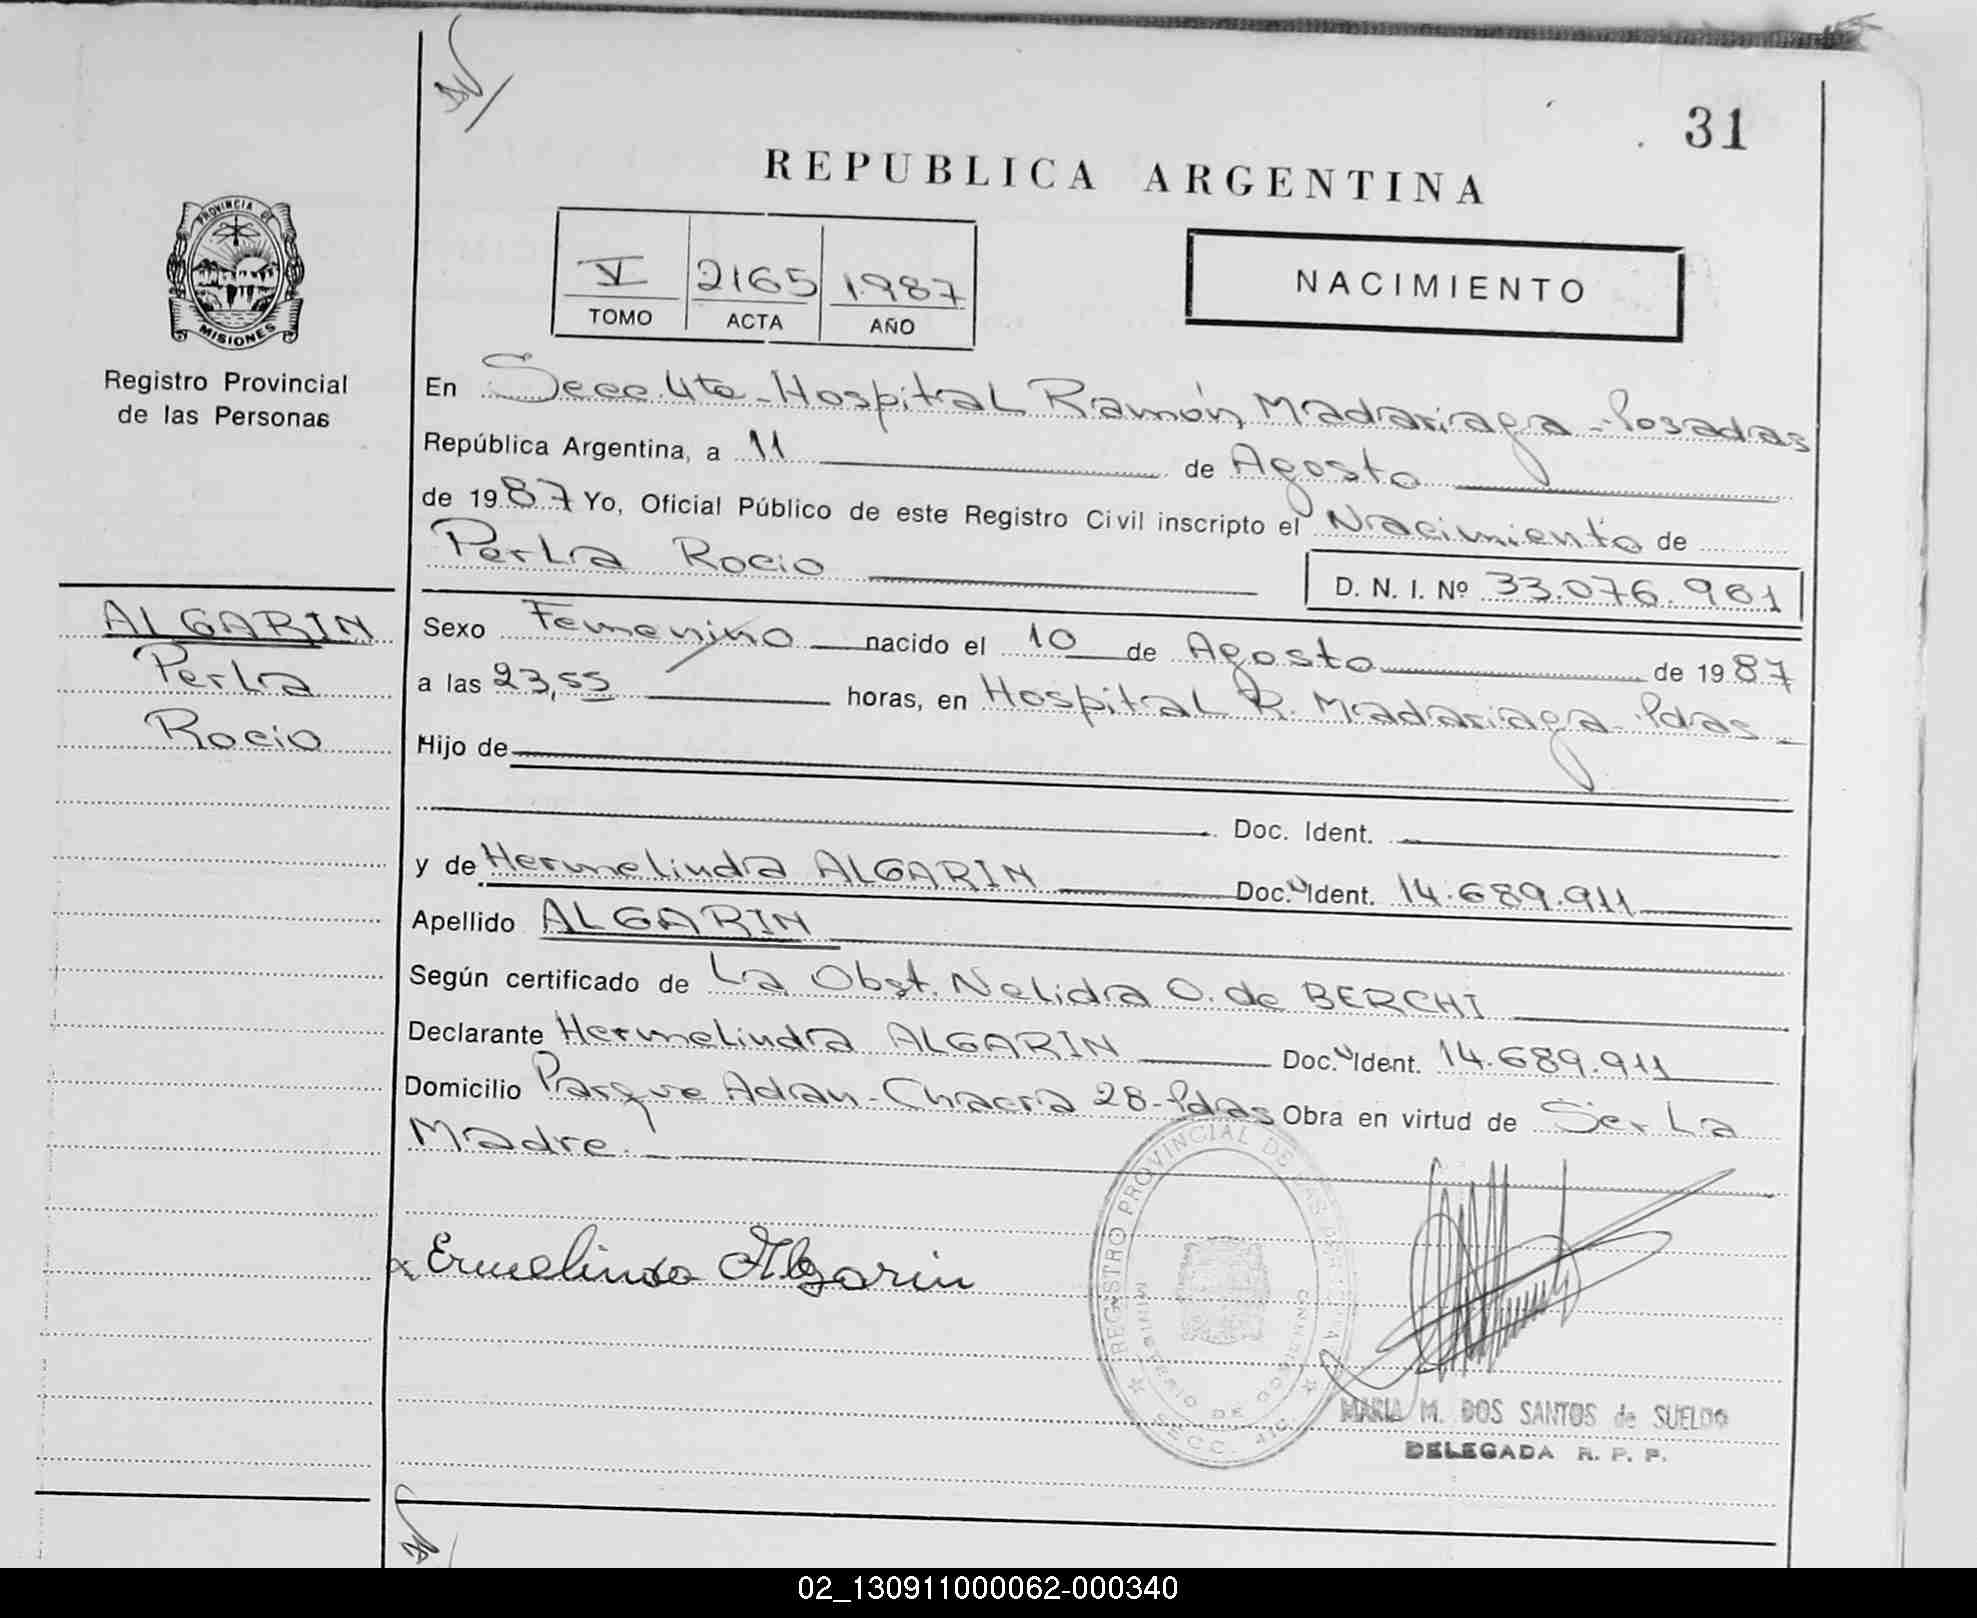 31
REPUBLICA ARGENTINA
PROVINCIA DE
MISIONES
Registro Provincial
de las Personas
V 2165 1987
TOMO ACTA AÑO
NACIMIENTO
En Secc. 4ta - Hospital Ramón Madariaga - Posadas
República Argentina, a 11 de Agosto
de 1987 Yo, Oficial Público de este Registro Civil inscripto el Nacimiento de
Perla Rocio
D. N. I. Nº 33.076.961
ALGARIN
Perla
Rocio
Sexo Femenino nacido el 10 de Agosto de 1987
a las 23,55 horas, en Hospital R. Madariaga - Pdas -
Hijo de
Doc. Ident.
y de Hermelinda ALGARIN Doc. Ident. 14.689.911
Apellido ALGARIN
Según certificado de La Obst. Nelida O. de BERCHI
Declarante Hermelinda ALGARIN Doc. Ident. 14.689.911
Domicilio Parque Adan - Chacra 28 - Pdas Obra en virtud de Ser La
Madre.
x Ermelinda Algarin
REGISTRO PROVINCIAL DE LAS
MINISTERIO DE GOBIERNO
SECC. 4TA
MARIA M. DOS SANTOS de SUELDO
DELEGADA R. P. P.
02_130911000062-000340